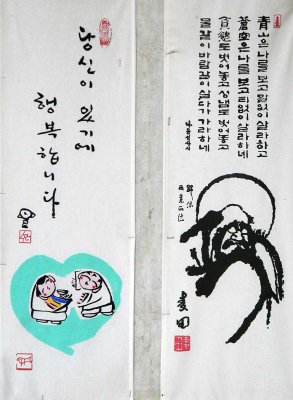 당신이 있기에
행복합니다
靑山은 나를 보고 말없이 살라하고
蒼空은 나를 보고 티없이 살라하네
貪慾도 벗어놓고 성냄도 벗어놓고
물같이 바람같이 살다가 가라하네